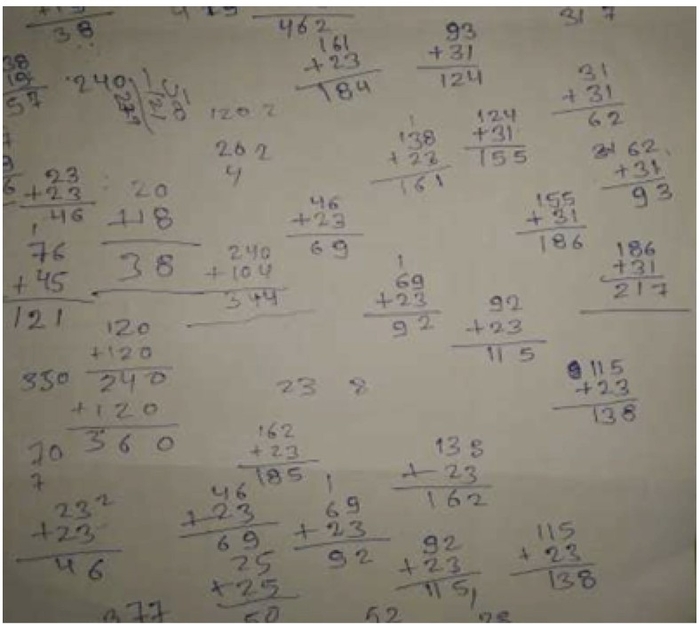 38
462
317
161
+23
184
93
+31
124
31
+31
62
38
19
57
240
1202
202
4
1
138
+23
161
124
+31
155
62
+31
93
23
+23
46
20
+18
38
46
+23
69
155
+31
186
1
76
+45
121
240
+104
344
1
69
+23
92
186
+31
217
92
+23
115
120
+120
240
+120
360
350
23 8
115
+23
138
70
7
162
+23
185
138
+23
162
232
+23
46
46
+23
69
1
69
+23
92
25
+25
50
92
+23
115
115
+23
138
377
52